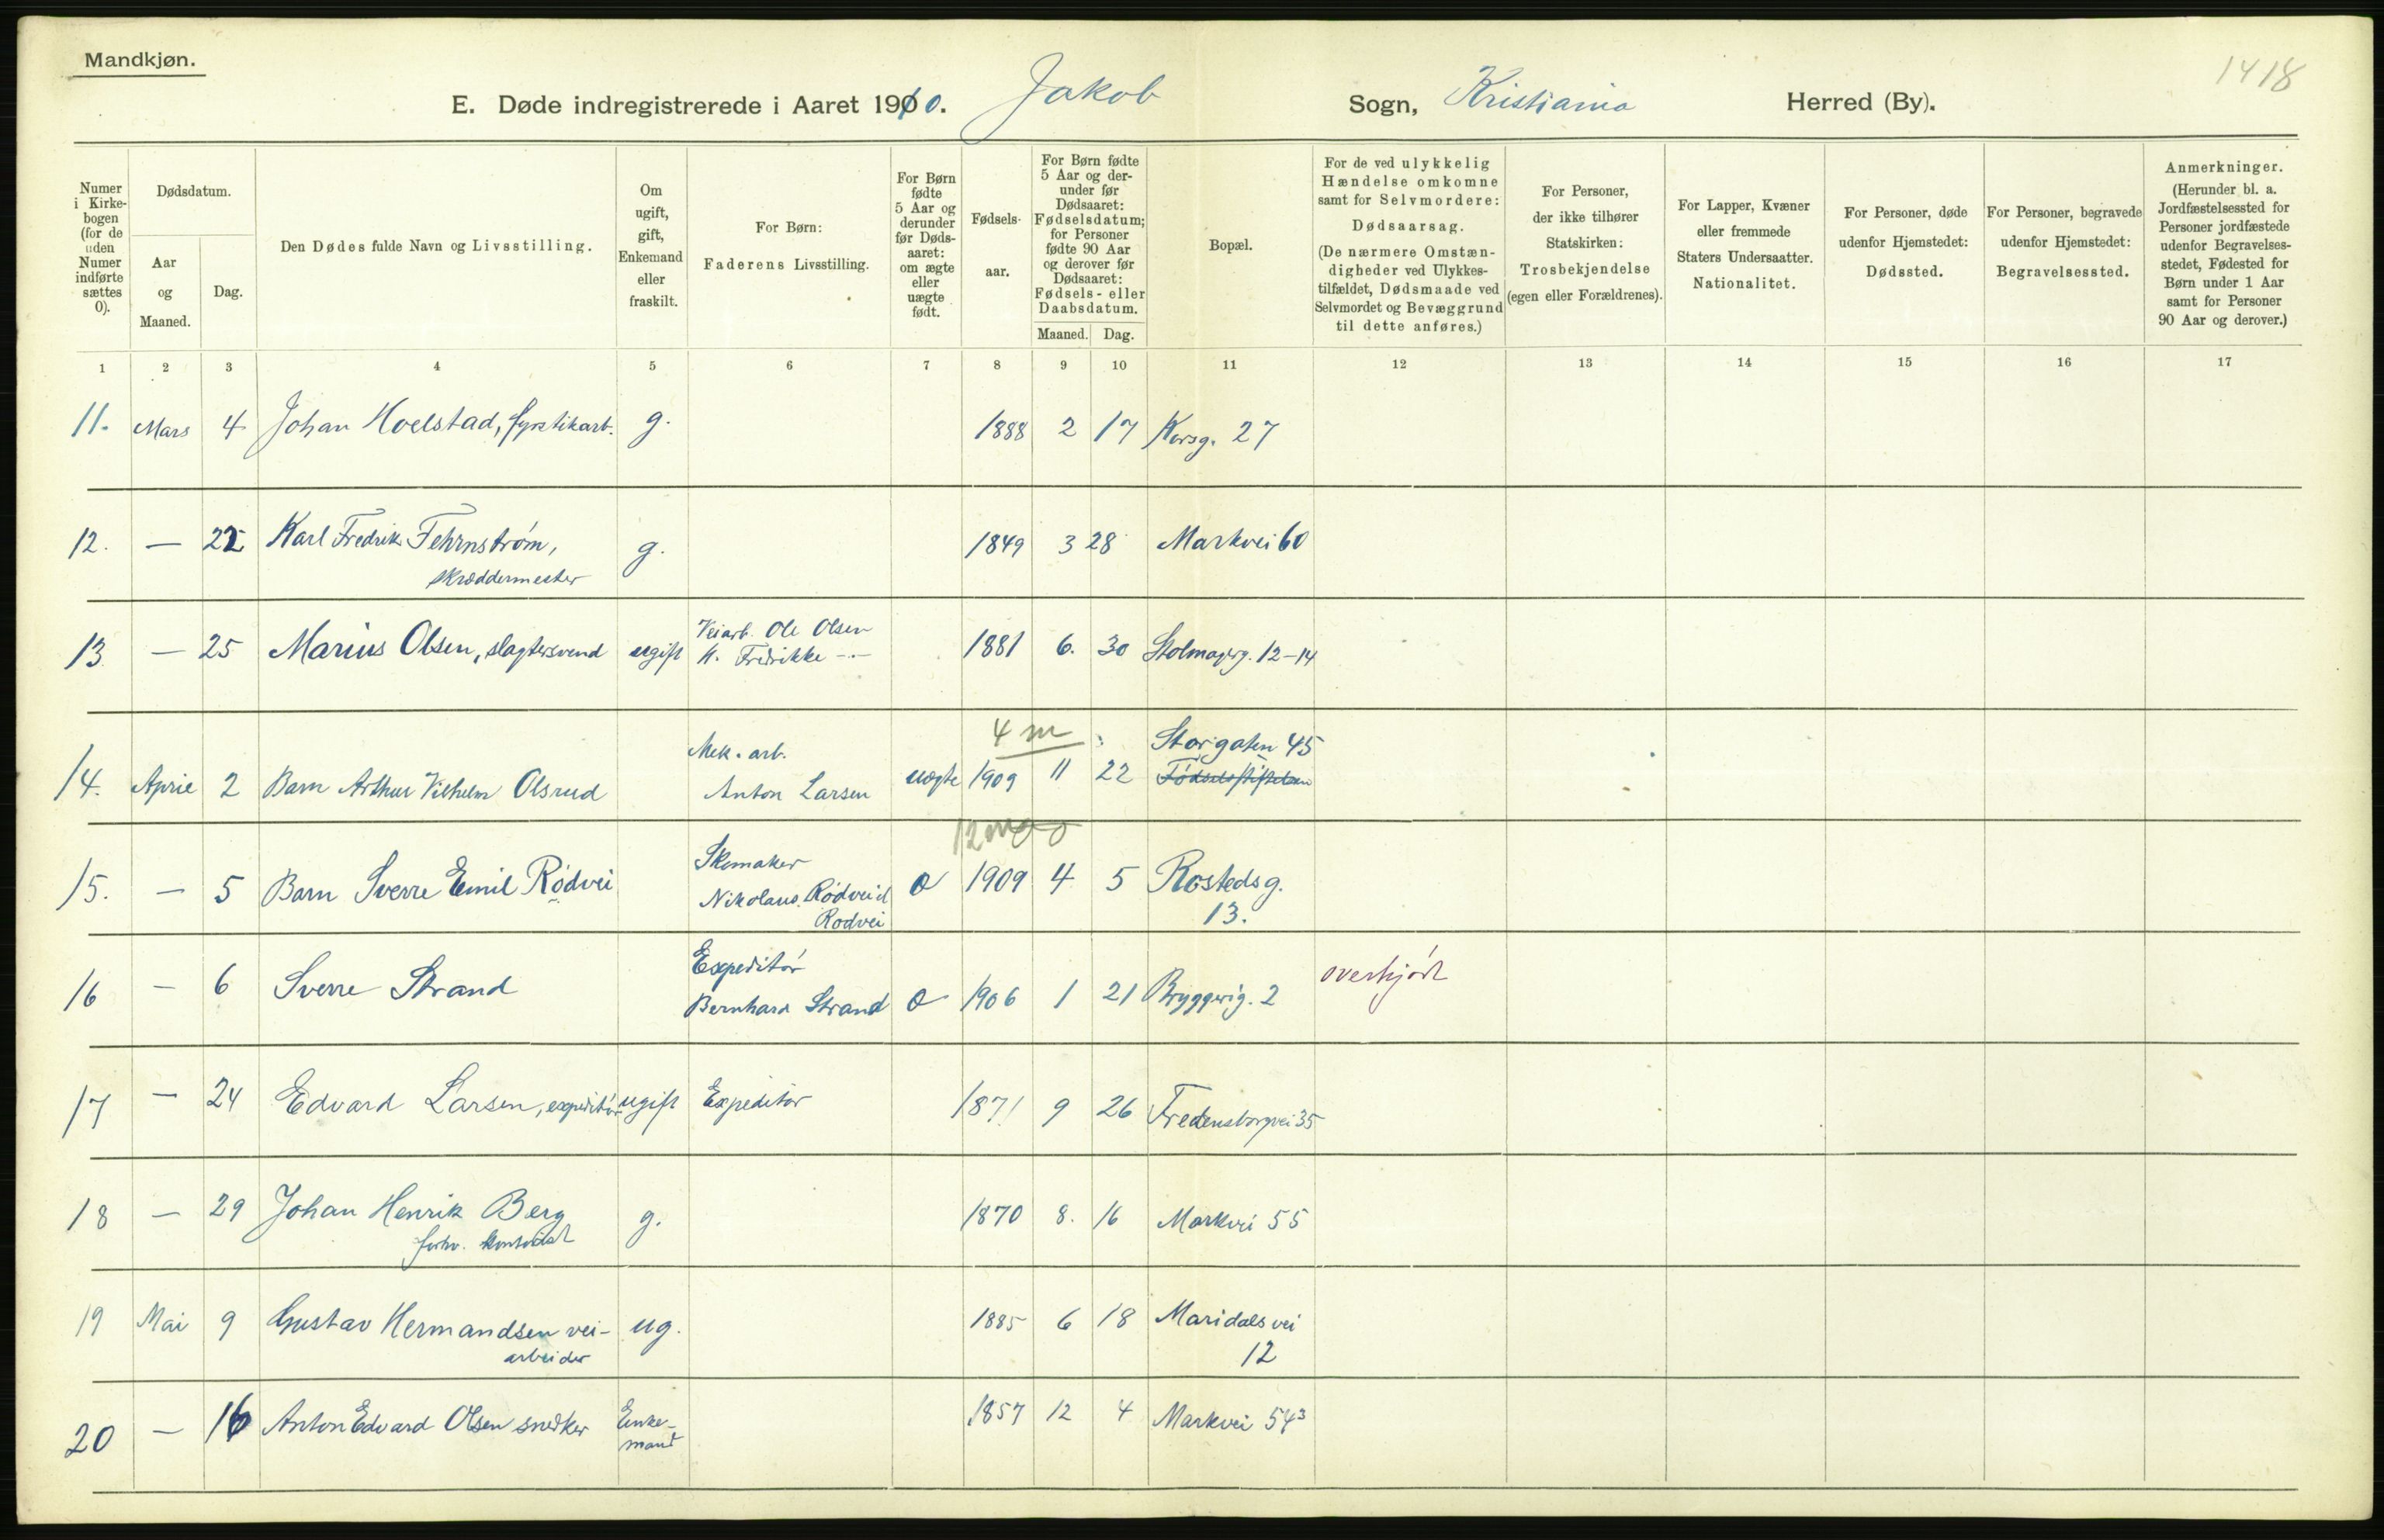 Mandkjøn.
1418
E. Døde indregistrerede i Aaret 1910. Jakob Sogn, Kristiania Herred (By).
Numer i Kirkebogen (for de uden Numer indførte sættes 0).
Dødsdatum.
Aar og Maaned.
Dag.
Den Dødes fulde Navn og Livsstilling.
Om ugift, gift, Enkemand eller fraskilt.
For Børn: Faderens Livsstilling.
For Børn fødte 5 Aar og derunder før Dødsaaret: om ægte eller uægte født.
Fødselsaar.
For Børn fødte 5 Aar og derunder før Dødsaaret: Fødselsdatum; for Personer fødte 90 Aar og derover før Dødsaaret: Fødsels- eller Daabsdatum.
Maaned. Dag.
Bopæl.
For de ved ulykkelig Hændelse omkomne samt for Selvmordere: Dødsaarsag. (De nærmere Omstændigheder ved Ulykkestilfældet, Dødsmaade ved Selvmordet og Bevæggrund til dette anføres.)
For Personer, der ikke tilhører Statskirken: Trosbekjendelse (egen eller Forældrenes).
For Lapper, Kvæner eller fremmede Staters Undersaatter. Nationalitet.
For Personer, døde udenfor Hjemstedet: Dødssted.
For Personer, begravede udenfor Hjemstedet: Begravelsessted.
Anmerkninger. (Herunder bl. a. Jordfæstelsessted for Personer jordfæstede udenfor Begravelsesstedet, Fødested for Børn under 1 Aar samt for Personer 90 Aar og derover.)
1 2 3 4 5 6 7 8 9 10 11 12 13 14 15 16 17
11. Mars 4 Johan Hoelstad, fyrstikarb. g. 1888 2 17 Korsg. 27
12. — 22 Karl Fredrik Fehrnstrøm, g. 1849 3 28 Markvei 60
skræddermester
13 — 25 Marius Olsen, slagtersvend ugift Veiarb. Ole Olsen 1881 6. 30 Stolmagerg. 12-14
H. Fredrikke —
4 m
Mek. arb. Storgaten 45
14. April 2 Barn Arthur Vilhelm Olsrud Anton Larsen uægte 1909 11 22 Fødselsstiftelsen
12
Skomaker
15. — 5 Barn Sverre Emil Rødvei Nikolaus Rødveid 0 1909 4 5 Rostedsg.
Rødvei 13.
Expeditør overkjørt
16 — 6 Sverre Strand Bernhard Strand 0 1906 1 21 Bryggerig. 2
17 — 24 Edvard Larsen, expeditør ugift Expeditør 1871 9 26 Fredensborgvei 35
18 — 29 Johan Henrik Berg g. 1870 8. 16 Markvei 55
forhv. kontorist
19 Mai 9 Gustav Hermandsen vei- ug. 1885 6 18 Maridalsvei
arbeider 12
20 — 16 Anton Edvard Olsen snedker Enke- 1857 12 4 Markvei 54³
mand